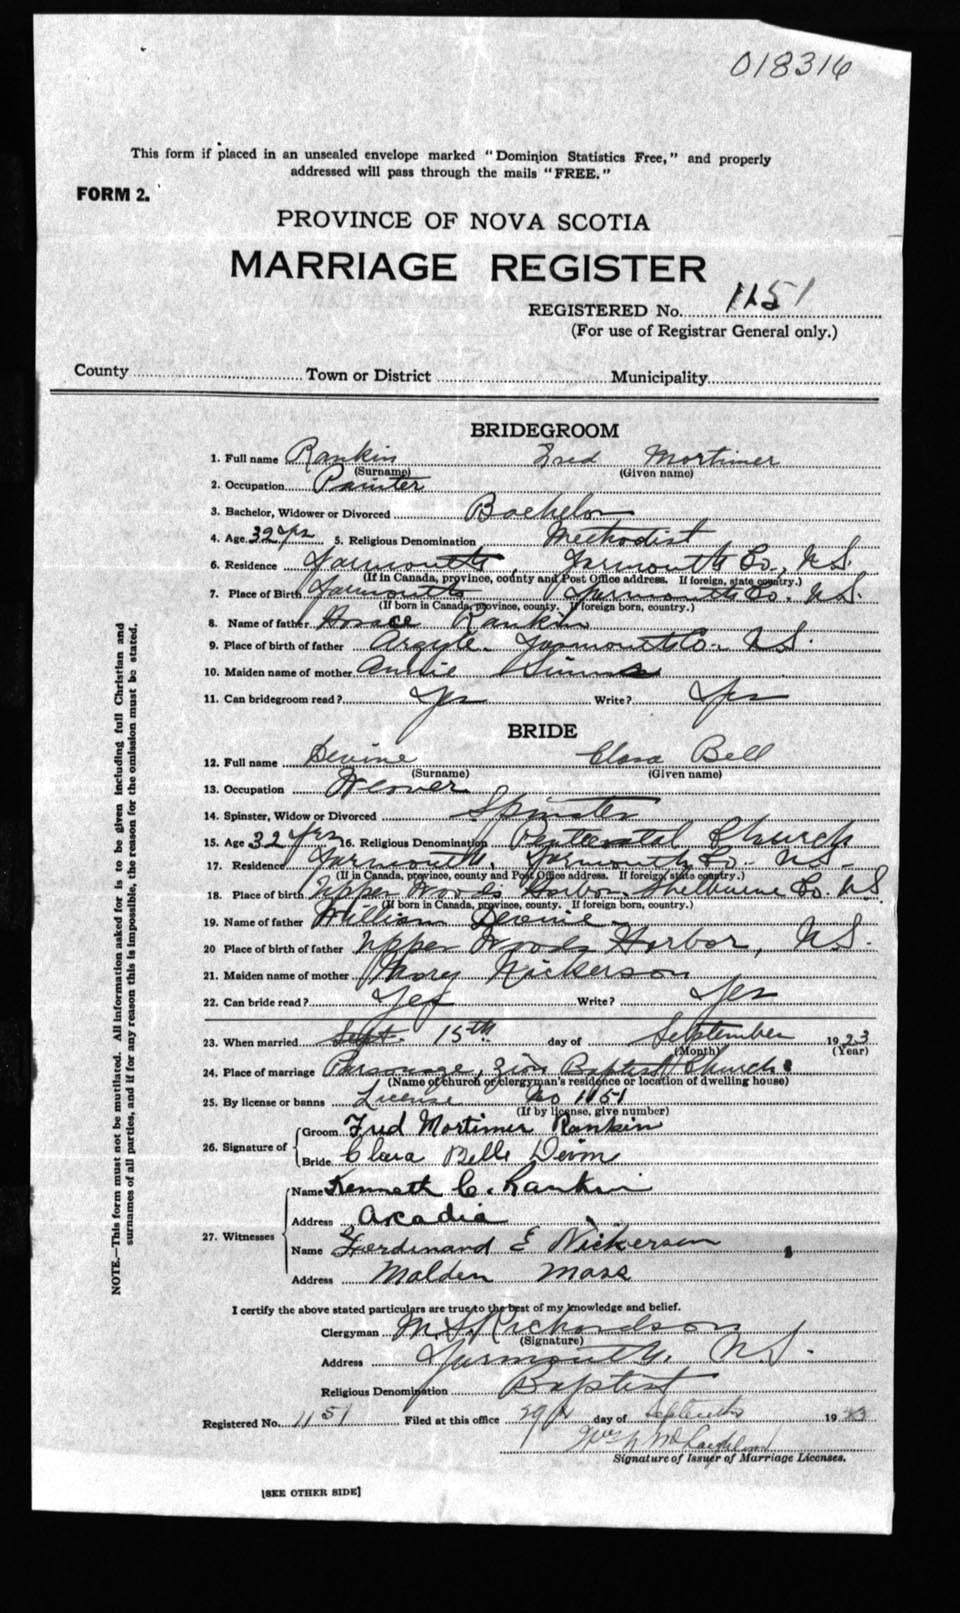 018316
This form if placed in an unsealed envelope marked "Dominion Statistics Free," and properly
addressed will pass through the mails "FREE."
FORM 2.
PROVINCE OF NOVA SCOTIA
MARRIAGE REGISTER
REGISTERED No. 1151
(For use of Registrar General only.)
County Town or District Municipality
BRIDEGROOM
1. Full name Rankin Fred Mortimer
(Surname) (Given name)
2. Occupation Painter
3. Bachelor, Widower or Divorced Bachelor
4. Age 32 yrs 5. Religious Denomination Methodist
6. Residence Yarmouth, Yarmouth Co., N.S.
(If in Canada, province, county and Post Office address. If foreign, state country.)
7. Place of Birth Yarmouth Yarmouth Co. N.S.
(If born in Canada, province, county. If foreign born, country.)
8. Name of father Horace Rankin
9. Place of birth of father Argyle. Yarmouth Co. N.S.
10. Maiden name of mother Annie Simms
11. Can bridegroom read? Yes Write? Yes
BRIDE
12. Full name Devine Clara Bell
(Surname) (Given name)
13. Occupation Weaver
14. Spinster, Widow or Divorced Spinster
15. Age 32 yrs 16. Religious Denomination Pentecostal Church
17. Residence Yarmouth, Yarmouth Co. N.S.
(If in Canada, province, county and Post Office address. If foreign, state country.)
18. Place of birth Upper Woods Harbor, Shelburne Co. N.S
(If born in Canada, province, county. If foreign born, country.)
19. Name of father William Devine
20 Place of birth of father Upper Woods Harbor, N.S.
21. Maiden name of mother Mary Nickerson
22. Can bride read? Yes Write? Yes
23. When married Sept. 15th day of September 1923
(Month) (Year)
24. Place of marriage Parsonage, Zion Baptist Church
(Name of church or clergyman's residence or location of dwelling house)
25. By license or banns License No 1151
(If by license, give number)
26. Signature of Groom Fred Mortimer Rankin
Bride Clara Belle Devine
27. Witnesses Name Kenneth C. Rankin
Address Arcadia
Name Ferdinand E Nickerson
Address Malden Mass
I certify the above stated particulars are true to the best of my knowledge and belief.
Clergyman M. S. Richardson
(Signature)
Address Yarmouth, N.S.
Religious Denomination Baptist
Registered No. 1151 Filed at this office 29th day of September 1923
Signature of Issuer of Marriage Licenses.
[SEE OTHER SIDE]
NOTE.—This form must not be mutilated. All information asked for is to be given including full Christian and
surnames of all parties, and if for any reason this is impossible, the reason for the omission must be stated.